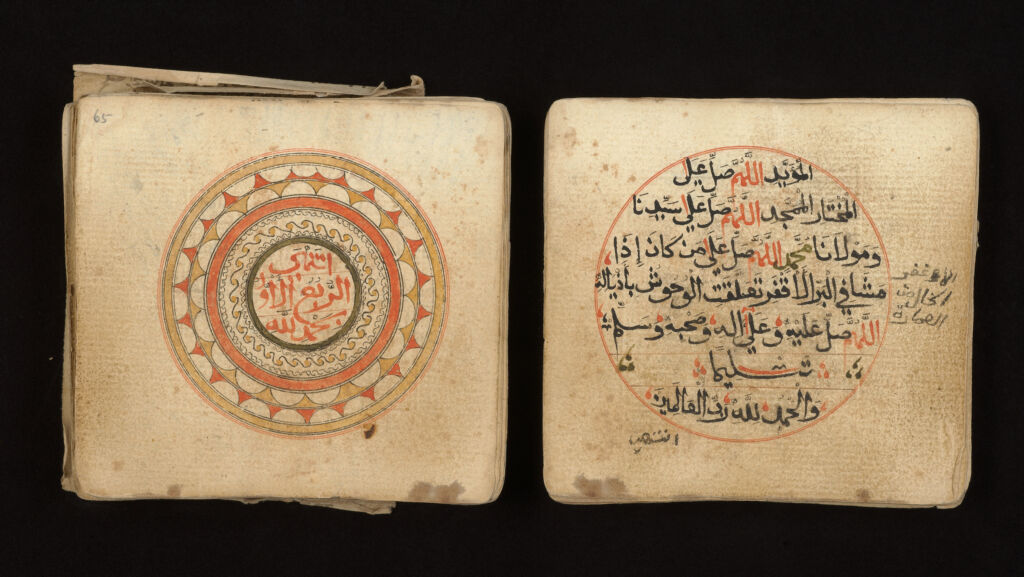 المؤيد اللهم صل على
المختار الممجد اللهم صل على سيدنا
ومولانا محمد اللهم صل على من كان إذا
مشا في البر الأقفر تعلقت الوحوش بأذياله
اللهم صل عليه وعلى آله وصحبه وسلم
تسليما
والحمد لله رب العالمين
انتهى
العمارة
65
الربع الاول
بحمد لله